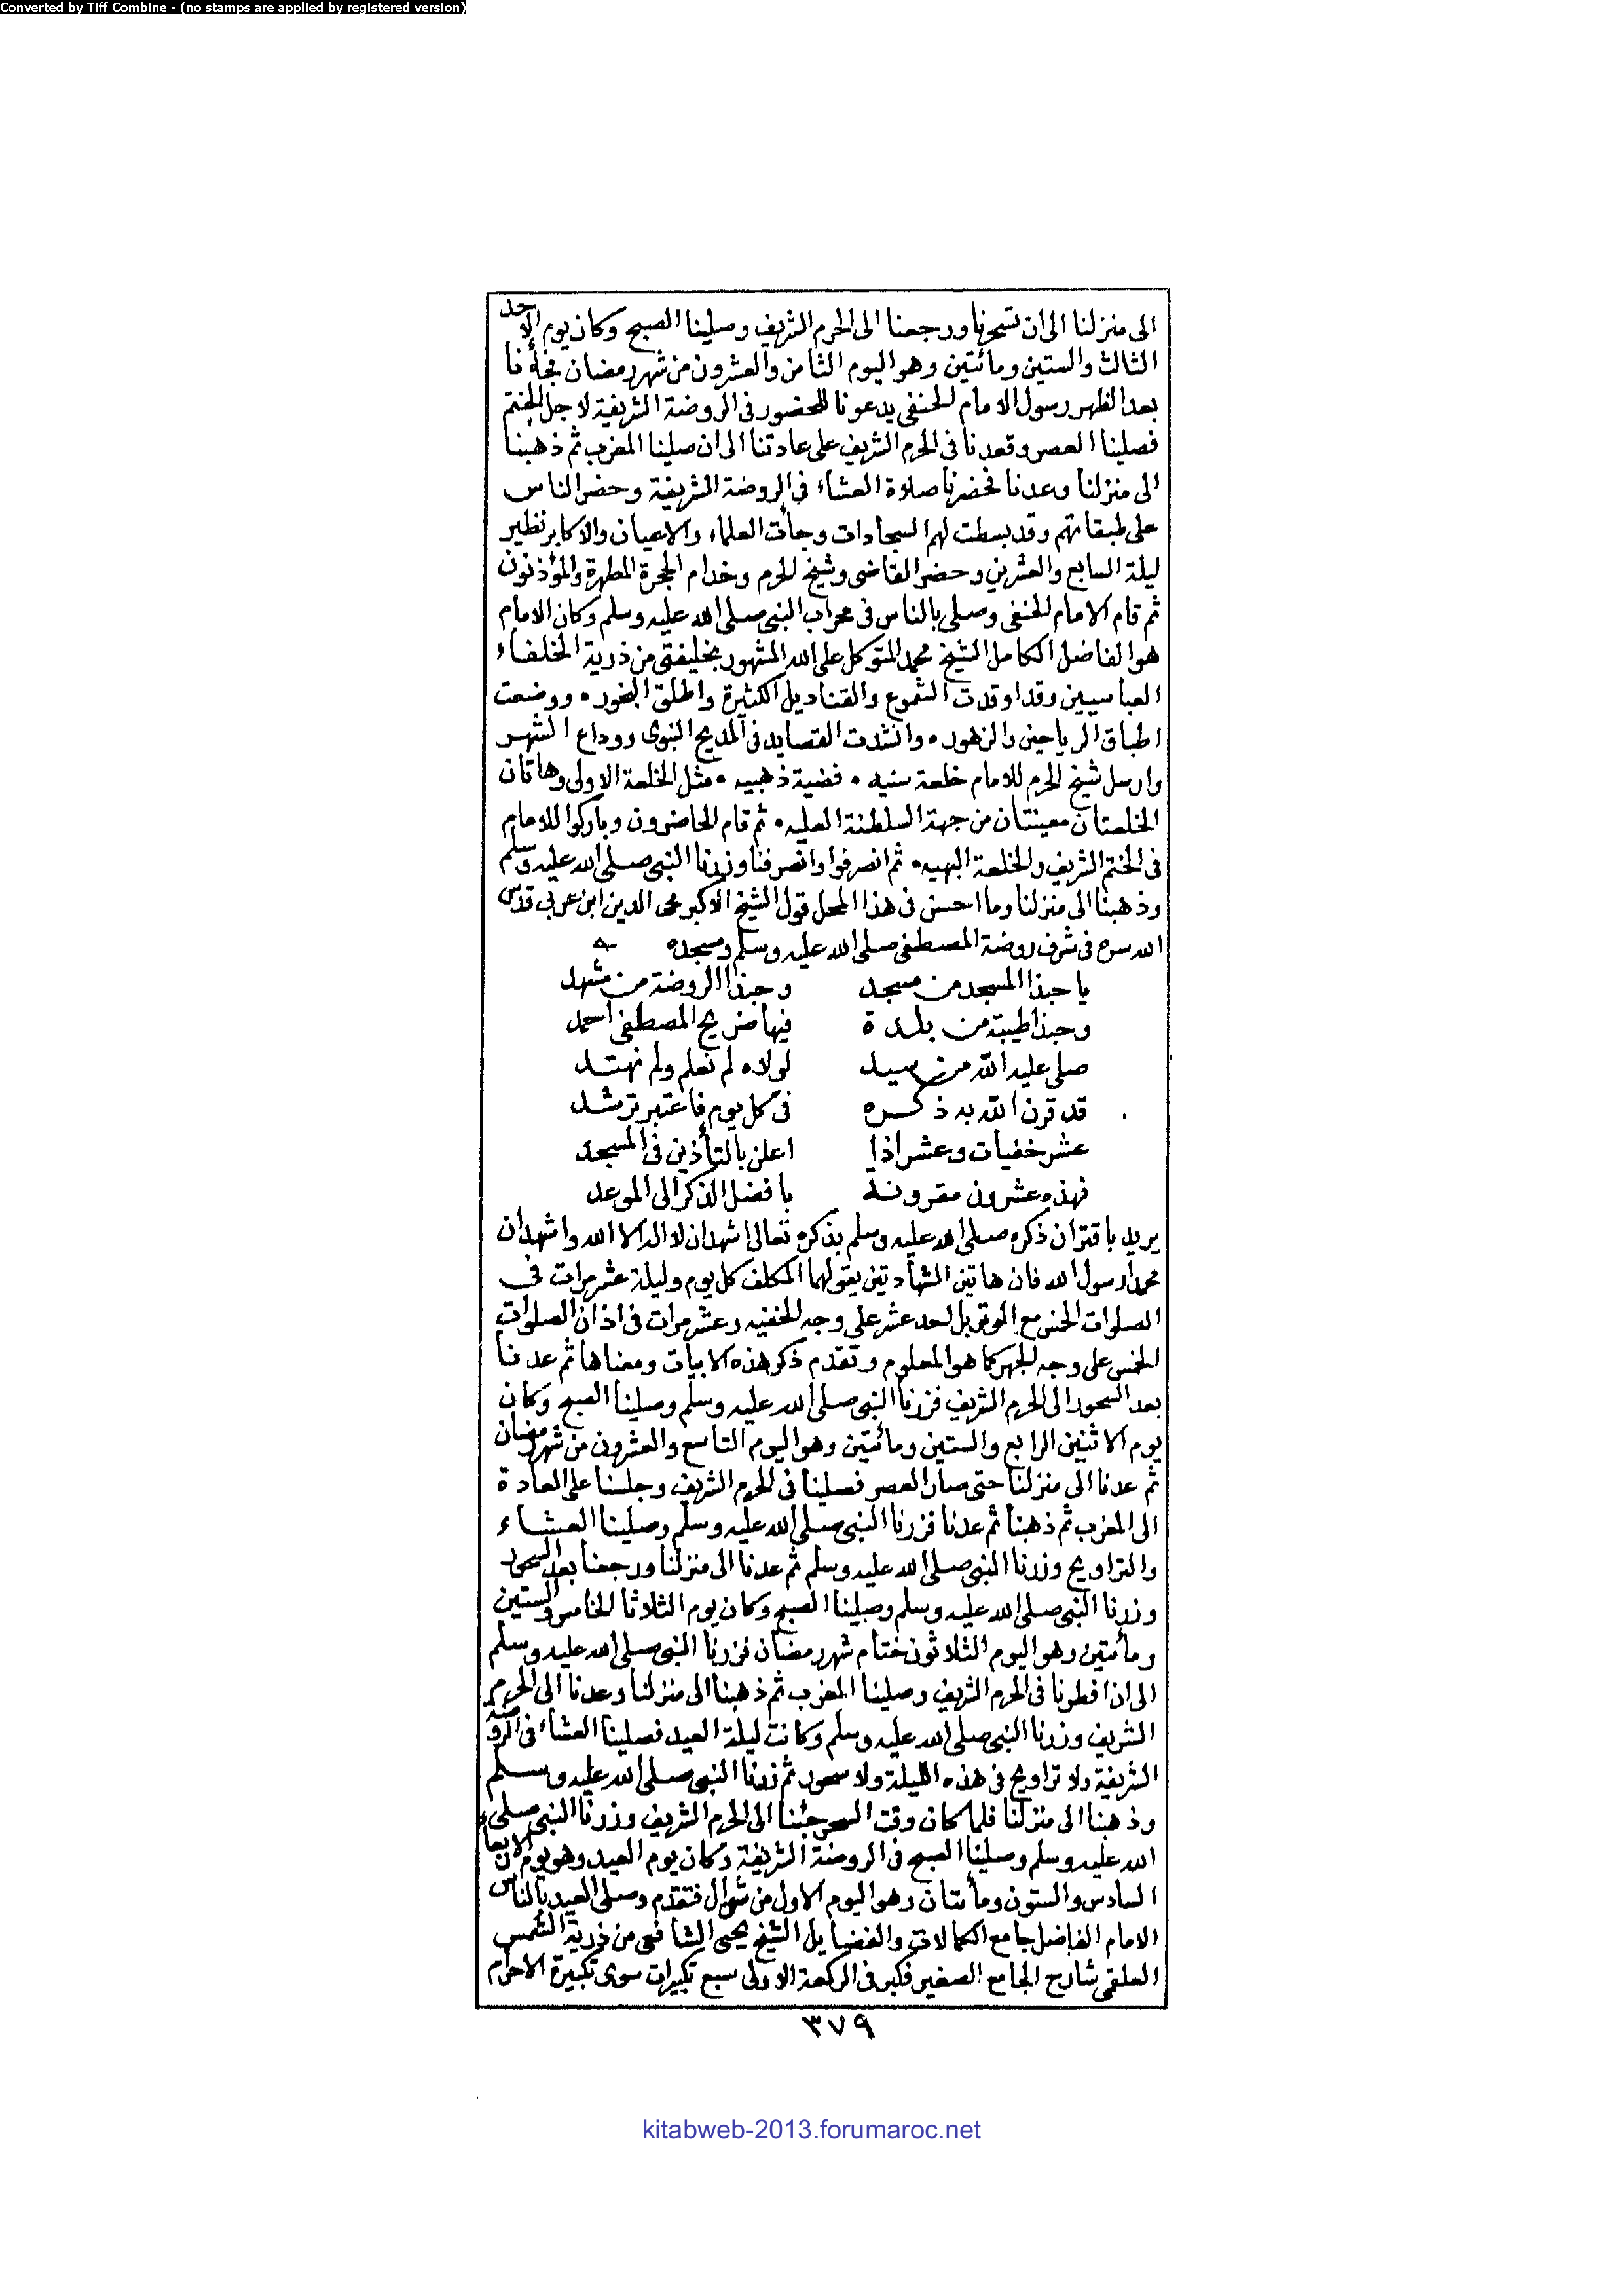 Converted by Tiff Combine - (no stamps are applied by registered version)
الى منزلنا الى ان تسحرنا ورجعنا الى الحرم الشريف وصلينا الصبح وكان يوم الاحد
الثالث والستين ومائتين وهو اليوم الثامن والعشرون من شهر رمضان فجاءنا
بعد الظهر رسول الامام الحنفى يدعونا للحضور فى الروضة الشريفة لاجل الختم
فصلينا العصر وقعدنا فى الحرم الشريف على عادتنا الى ان صلينا المغرب ثم ذهبنا
الى منزلنا وعدنا فحضرنا صلاة العشاء فى الروضة الشريفة وحضر الناس
على طبقاتهم وقد بسطت لهم السجادات وجأت العلماء والاعيان والاكابر نظير
ليلة السابع والعشرين وحضر القاضى وشيخ الحرم وخدام الحجرة المطهرة والمؤذنون
ثم قام الامام الحنفى وصلى بالناس فى محراب النبى صلى الله عليه وسلم وكان الامام
هو الفاضل الكامل الشيخ محمد المتوكل على الله المشهور بخليفتى من ذرية الخلفاء
العباسيين وقد اوقدت الشموع والقناديل الكثيرة واطلق البخور ۰ ووضعت
اطباق الرياحين والزهور ۰ وانشدت القصايد فى المديح النبوى ووداع الشهر
وارسل شيخ الحرم للامام خلعة سنيه ۰ فضية ذهبيه ۰ مثل الخلعة الاولى وهاتان
الخلعتان معينتان من جهة السلطنة العليه ۰ ثم قام الحاضرون وباركوا للامام
فى الختم الشريف والخلعة البهيه ۰ ثم انصرفوا وانصرفنا وزرنا النبى صلى الله عليه وسلم
وذهبنا الى منزلنا وما احسن فى هذا المحل قول الشيخ الاكبر محى الدين ابن عربى قدس
الله سره فى شرف روضة المصطفى صلى الله عليه وسلم ومسجده
يا حبذا المسجد من مسجد وحبذا الروضة من مشهد
وحبذا طيبة من بلدة فيها ضريح المصطفى احمد
صلى عليه الله من سيد لولاه لم نعلم ولم نهتد
قد قرن الله به ذكره فى كل يوم فاعتبر ترشد
عشر خفيات وعشر اذا اعلن بالتأذين فى المسجد
فهذه عشرون مقرونة بافضل الذكر الى الموعد
يريد باقتران ذكره صلى الله عليه وسلم بذكره تعالى اشهد ان لا اله الا الله واشهد ان
محمدا رسول الله فان هاتين الشهادتين يقولهما المكلف كل يوم وليلة عشر مرات فى
الصلوات الخمس مع الوتر بل احد عشر على وجه الخفيه وعشر مرات فى اذان الصلوات
الخمس على وجه الجهر كما هو المعلوم وتقدم ذكر هذه الابيات ومعناها ثم عدنا
بعد السحور الى الحرم الشريف فزرنا النبى صلى الله عليه وسلم وصلينا الصبح وكان
يوم الاثنين الرابع والستين ومائتين وهو اليوم التاسع والعشرون من شهر رمضان
ثم عدنا الى منزلنا حتى صار العصر فصلينا فى الحرم الشريف وجلسنا على العادة
الى المغرب ثم ذهبنا ثم عدنا فزرنا النبى صلى الله عليه وسلم وصلينا العشاء
والتراويح وزرنا النبى صلى الله عليه وسلم ثم عدنا الى منزلنا ورجعنا بعد السحور
وزرنا النبى صلى الله عليه وسلم وصلينا الصبح وكان يوم الثلاثا الخامس والستين
ومائتين وهو اليوم الثلاثون ختام شهر رمضان فزرنا النبى صلى الله عليه وسلم
الى ان افطرنا فى الحرم الشريف وصلينا المغرب ثم ذهبنا الى منزلنا وعدنا الى الحرم
الشريف وزرنا النبى صلى الله عليه وسلم وكانت ليلة العيد فصلينا العشاء فى الروضة
الشريفة ولا تراويح فى هذه الليلة ولا سحور ثم زرنا النبى صلى الله عليه وسلم
وذهبنا الى منزلنا فلما كان وقت السحر جئنا الى الحرم الشريف وزرنا النبى صلى
الله عليه وسلم وصلينا الصبح فى الروضة الشريفة وكان يوم العيد وهو يوم الاربعا
السادس والستون ومأتان وهو اليوم الاول من شوال فتقدم وصلى العيد بالناس
الامام الفاضل جامع الكمالات والفضايل الشيخ يحيى الشافعى من ذرية الشمس
العلقمى شارح الجامع الصغير فكبر فى الركعة الاولى سبع تكبيرات سوى تكبيرة الاحرام
٣٧٩
kitabweb-2013.forumaroc.net